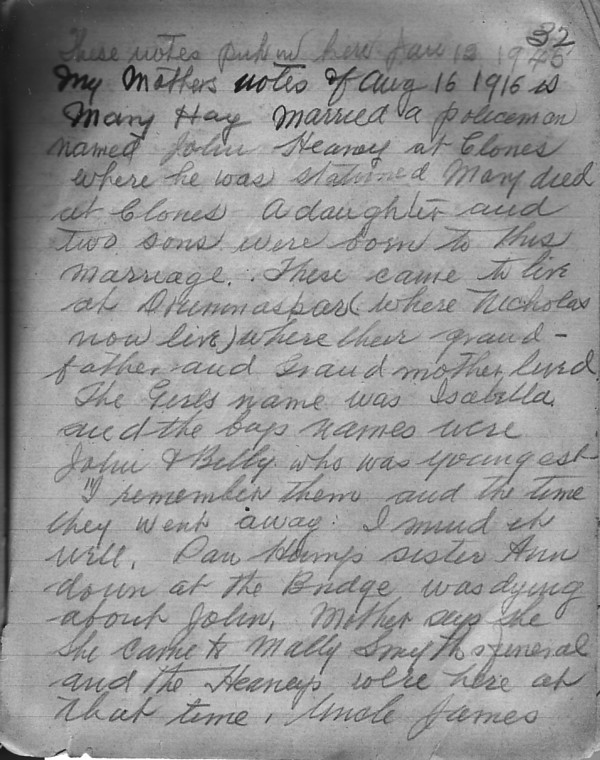 32
These notes put in here Jan 12 1945
My Mothers notes of Aug 16 1916 is
Mary Hay married a policeman
named John Heaney at Clones
where he was stationed Mary died
at Clones A daughter and
two sons were born to this
marriage. These came to live
at Drumnaspar (where Nicholas
now live) where their grand-
father and Grand mother lived
The Girls name was Isabella
and the boys names were
John & Billy who was youngest
"I remember them and the time
they went away. I mind it
will. Dan Hamps sister Ann
down at the Bridge was dying
about John. Mother says she
She came to Mally Smyths funeral
and the Heaneys were here at
that time. Uncle James